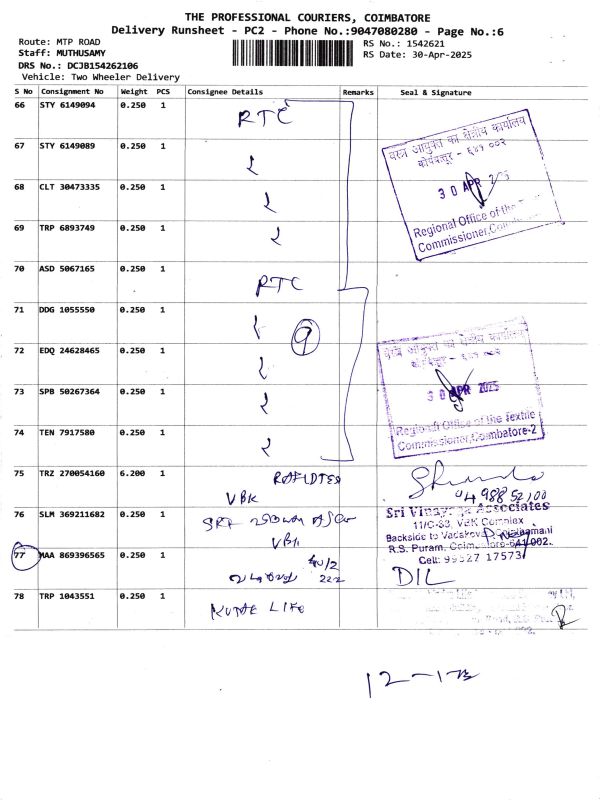 THE PROFESSIONAL COURIERS, COIMBATORE
Delivery Runsheet - PC2 - Phone No.:9047080280 - Page No.:6
Route: MTP ROAD
Staff: MUTHUSAMY
DRS No.: DCJB154262106
Vehicle: Two Wheeler Delivery
RS No.: 1542621
RS Date: 30-Apr-2025
S No Consignment No Weight PCS Consignee Details Remarks Seal & Signature
66 STY 6149094 0.250 1 RTC
67 STY 6149089 0.250 1
68 CLT 30473335 0.250 1
69 TRP 6893749 0.250 1
वस्त्र आयुक्त का क्षेत्रीय कार्यालय
कोयंबत्तूर - ६४१ ००२
30 APR
Regional Office of the
Commissioner,
70 ASD 5067165 0.250 1 RTC
71 DDG 1055550 0.250 1
9
72 EDQ 24628465 0.250 1
73 SPB 50267364 0.250 1
74 TEN 7917580 0.250 1
क्षेत्रीय कार्यालय
30 APR 2025
Regional Office of the Textile
Commissioner, Coimbatore-2
75 TRZ 270054160 6.200 1
VBK
76 SLM 369211682 0.250 1
Sri Vinayaga Associates
11/C-83, VBK Complex
Backside to
R.S. Puram, Coimbatore-641 002.
Cell: 99527 17573
77 MAA 869396565 0.250 1
DIL
78 TRP 1043551 0.250 1
LIFE